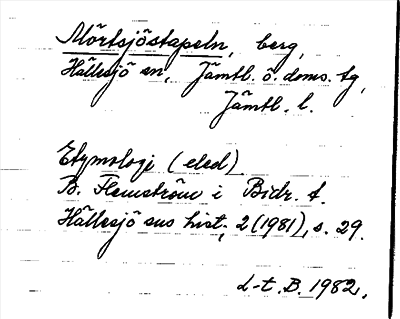 Mörtsjöstapeln, berg,
Hällesjö sn, Jämtl. ö. doms. tg,
Jämtl. l.
Etymologi (eled)
B. Flemström i Bidr. t.
Hällesjö sns hist., 2 (1981), s. 29.
L-t. B. 1982.